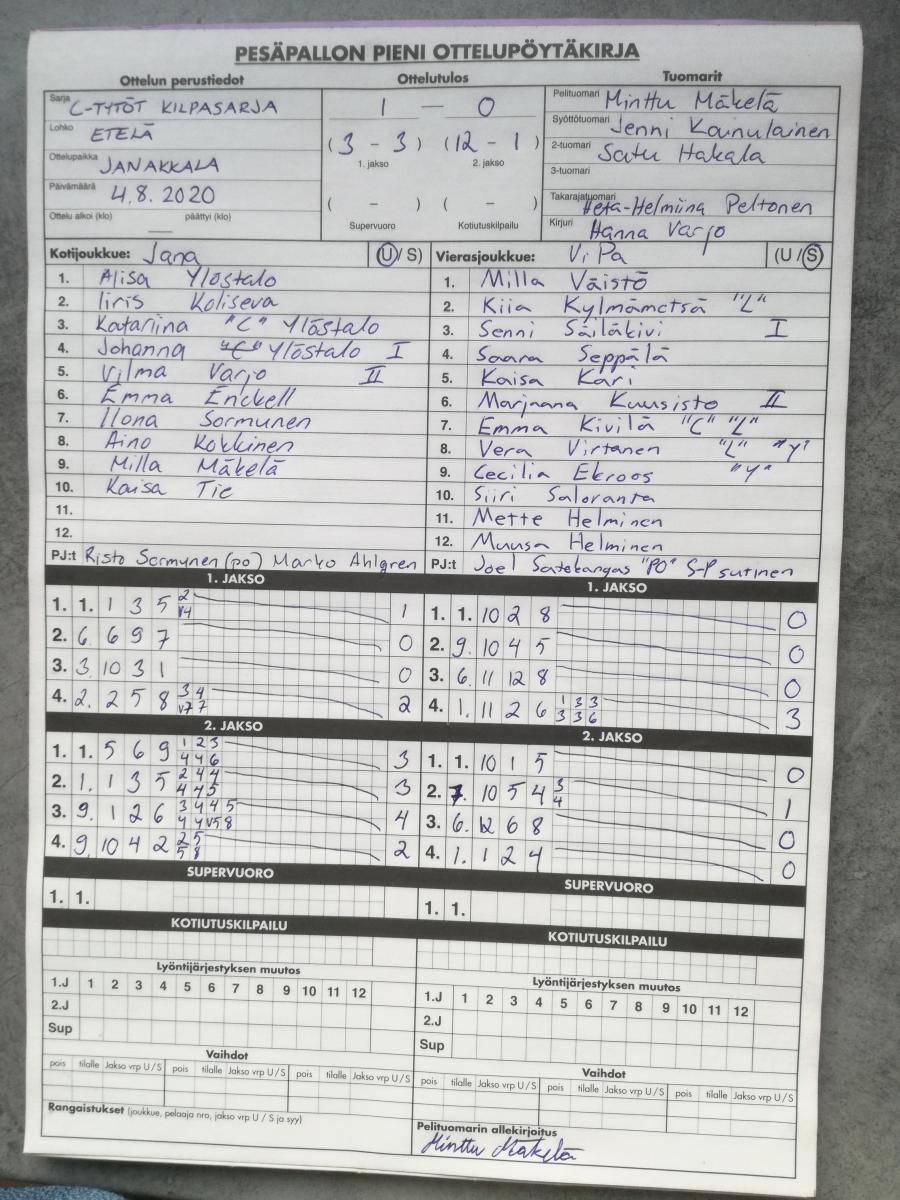 PESÄPALLON PIENI OTTELUPÖYTÄKIRJA
Ottelun perustiedot
Sarja C-TYTÖT KILPASARJA
Lohko ETELÄ
Ottelupaikka JANAKKALA
Päivämäärä 4.8.2020
Ottelu alkoi (klo) — päättyi (klo)
Ottelutulos
1 — 0
(3 - 3) (12 - 1)
1. jakso 2. jakso
( - ) ( - )
Supervuoro Kotiutuskilpailu
Tuomarit
Pelituomari Minttu Mäkelä
Syöttötuomari Jenni Kainulainen
2-tuomari Satu Hakala
3-tuomari
Takarajatuomari Heta-Helmiina Peltonen
Kirjuri Hanna Varjo
Kotijoukkue: Jana (U/S)
1. Alisa Ylöstalo
2. Iiris Koliseva
3. Katariina "C" Ylöstalo
4. Johanna "C" Ylöstalo I
5. Vilma Varjo II
6. Emma Enckell
7. Ilona Sormunen
8. Aino Kokkinen
9. Milla Mäkelä
10. Kaisa Tie
11.
12.
PJ:t Risto Sormunen (po) Marko Ahlgren
Vierasjoukkue: ViPa (U/S)
1. Milla Väistö
2. Kiia Kylmämetsä "L"
3. Senni Säiläkivi I
4. Saara Seppälä
5. Kaisa Kari
6. Marjaana Kuusisto II
7. Emma Kivilä "C" "L"
8. Vera Virtanen "L" "Y"
9. Cecilia Ekroos "Y"
10. Siiri Saloranta
11. Mette Helminen
12. Muusa Helminen
PJ:t Joel "PO" S-P sutinen
1. JAKSO
1. 1. 1 3 5 2 V4 1
2. 6. 6 9 7 0
3. 3. 10 3 1 0
4. 2. 2 5 8 3 4 V7 7 2
2. JAKSO
1. 1. 5 6 9 1 2 3 4 4 6 3
2. 1. 1 3 5 2 4 4 4 4 5 3
3. 9. 1 2 6 3 4 4 5 4 4 V5 8 4
4. 9. 10 4 2 2 5 5 8 2
SUPERVUORO
1. 1.
KOTIUTUSKILPAILU
Lyöntijärjestyksen muutos
1.J 1 2 3 4 5 6 7 8 9 10 11 12
2.J
Sup
Vaihdot
pois tilalle Jakso vrp U/S pois tilalle Jakso vrp U/S pois tilalle Jakso vrp U/S
Rangaistukset (joukkue, pelaaja nro, jakso vrp U / S ja syy)
1. JAKSO
1. 1. 10 2 8 0
2. 9. 10 4 5 0
3. 6. 11 12 8 0
4. 1. 11 2 6 1 3 3 3 3 6 3
2. JAKSO
1. 1. 10 1 5 0
2. 7. 10 5 4 3 4 1
3. 6. 12 6 8 0
4. 1. 1 2 4 0
SUPERVUORO
1. 1.
KOTIUTUSKILPAILU
Lyöntijärjestyksen muutos
1.J 1 2 3 4 5 6 7 8 9 10 11 12
2.J
Sup
Vaihdot
pois tilalle Jakso vrp U/S pois tilalle Jakso vrp U/S pois tilalle Jakso vrp U/S
Pelituomarin allekirjoitus
Minttu Mäkelä